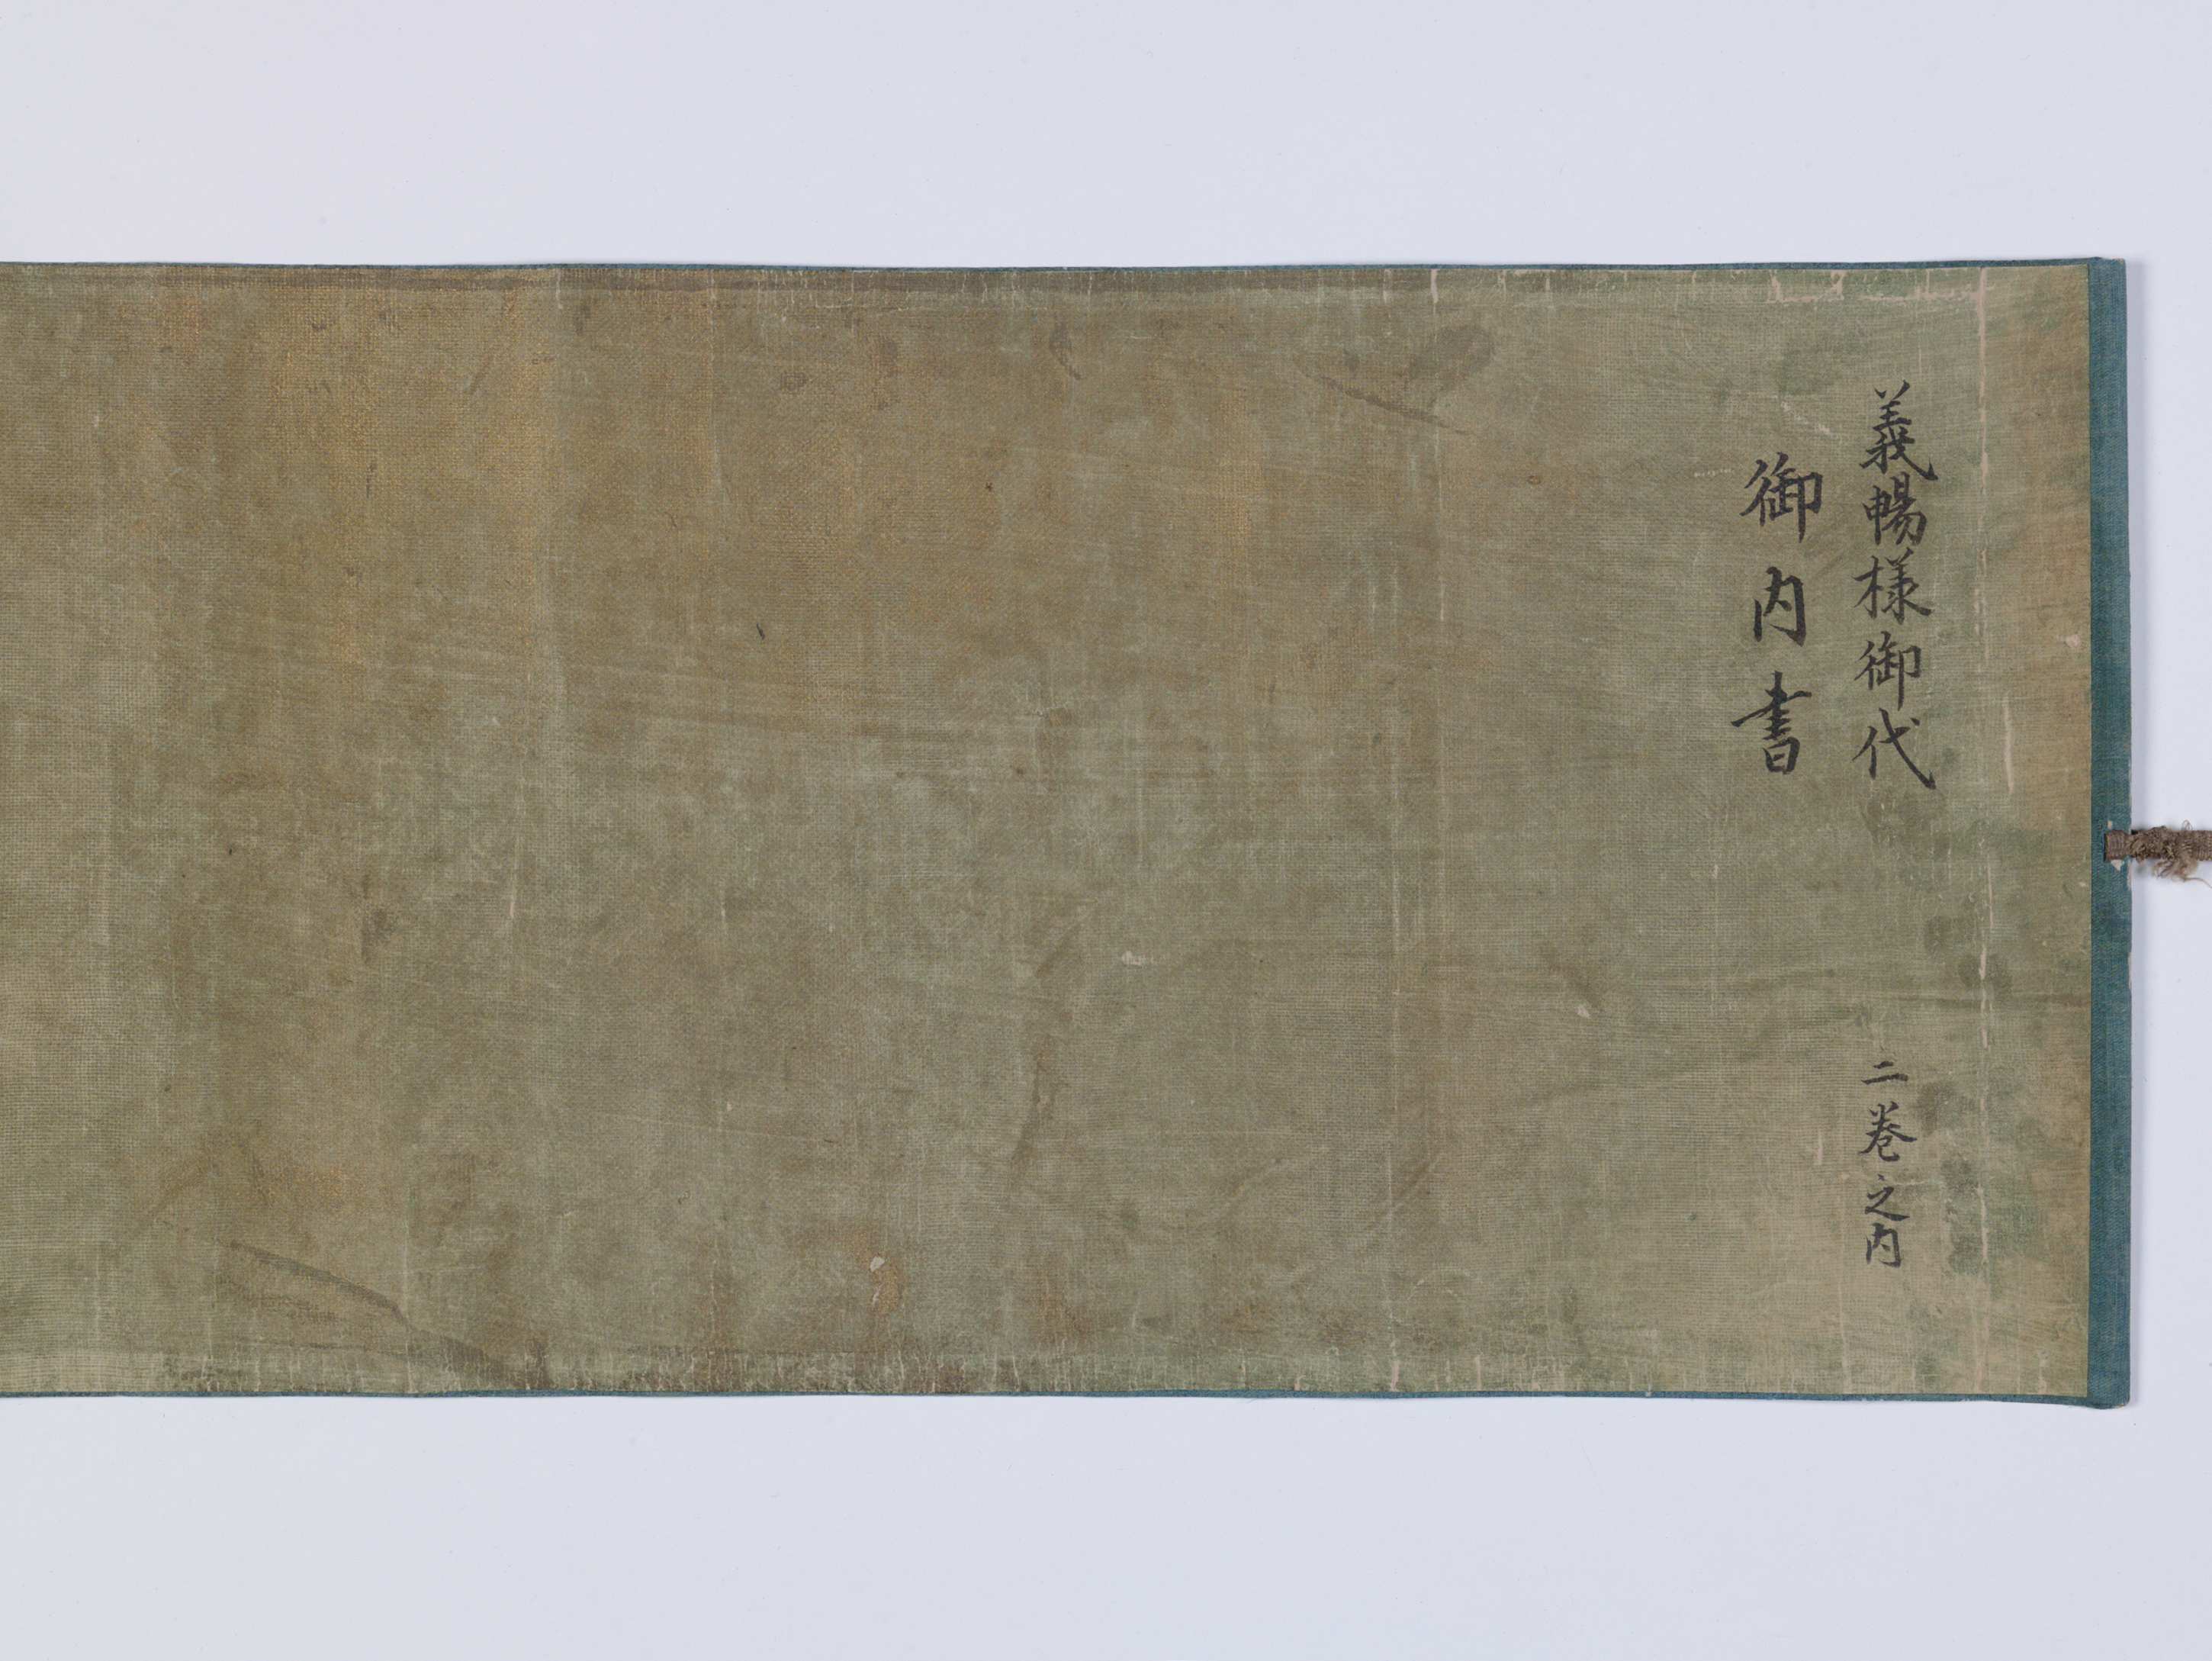 義暢様御代 二巻之内
御内書